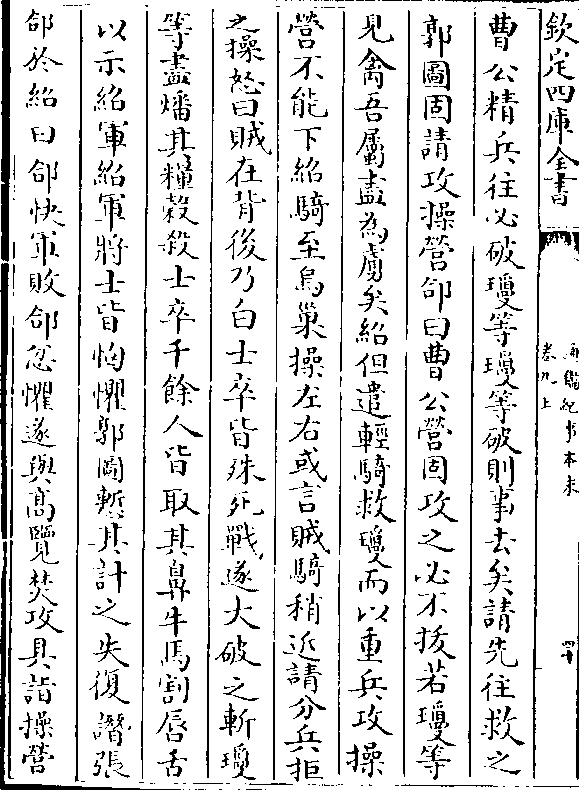 欽定四庫全書
通鑑紀事本末
卷九上
四十
曹公精兵往必破瓊等瓊等破則事去矣請先往救之
郭圖固請攻操營郃曰曹公營固攻之必不拔若瓊等
見禽吾屬盡為虜矣紹但遣輕騎救瓊而以重兵攻操
營不能下紹騎至烏巢操左右或言賊騎稍近請分兵拒
之操怒曰賊在背後乃白士卒皆殊死戰遂大破之斬瓊
等盡燔其糧穀殺士卒千餘人皆取其鼻牛馬割唇舌
以示紹軍紹軍將士皆恟懼郭圖慙其計之失復譖張
郃於紹曰郃快軍敗郃忿懼遂與高覽焚攻具詣操營